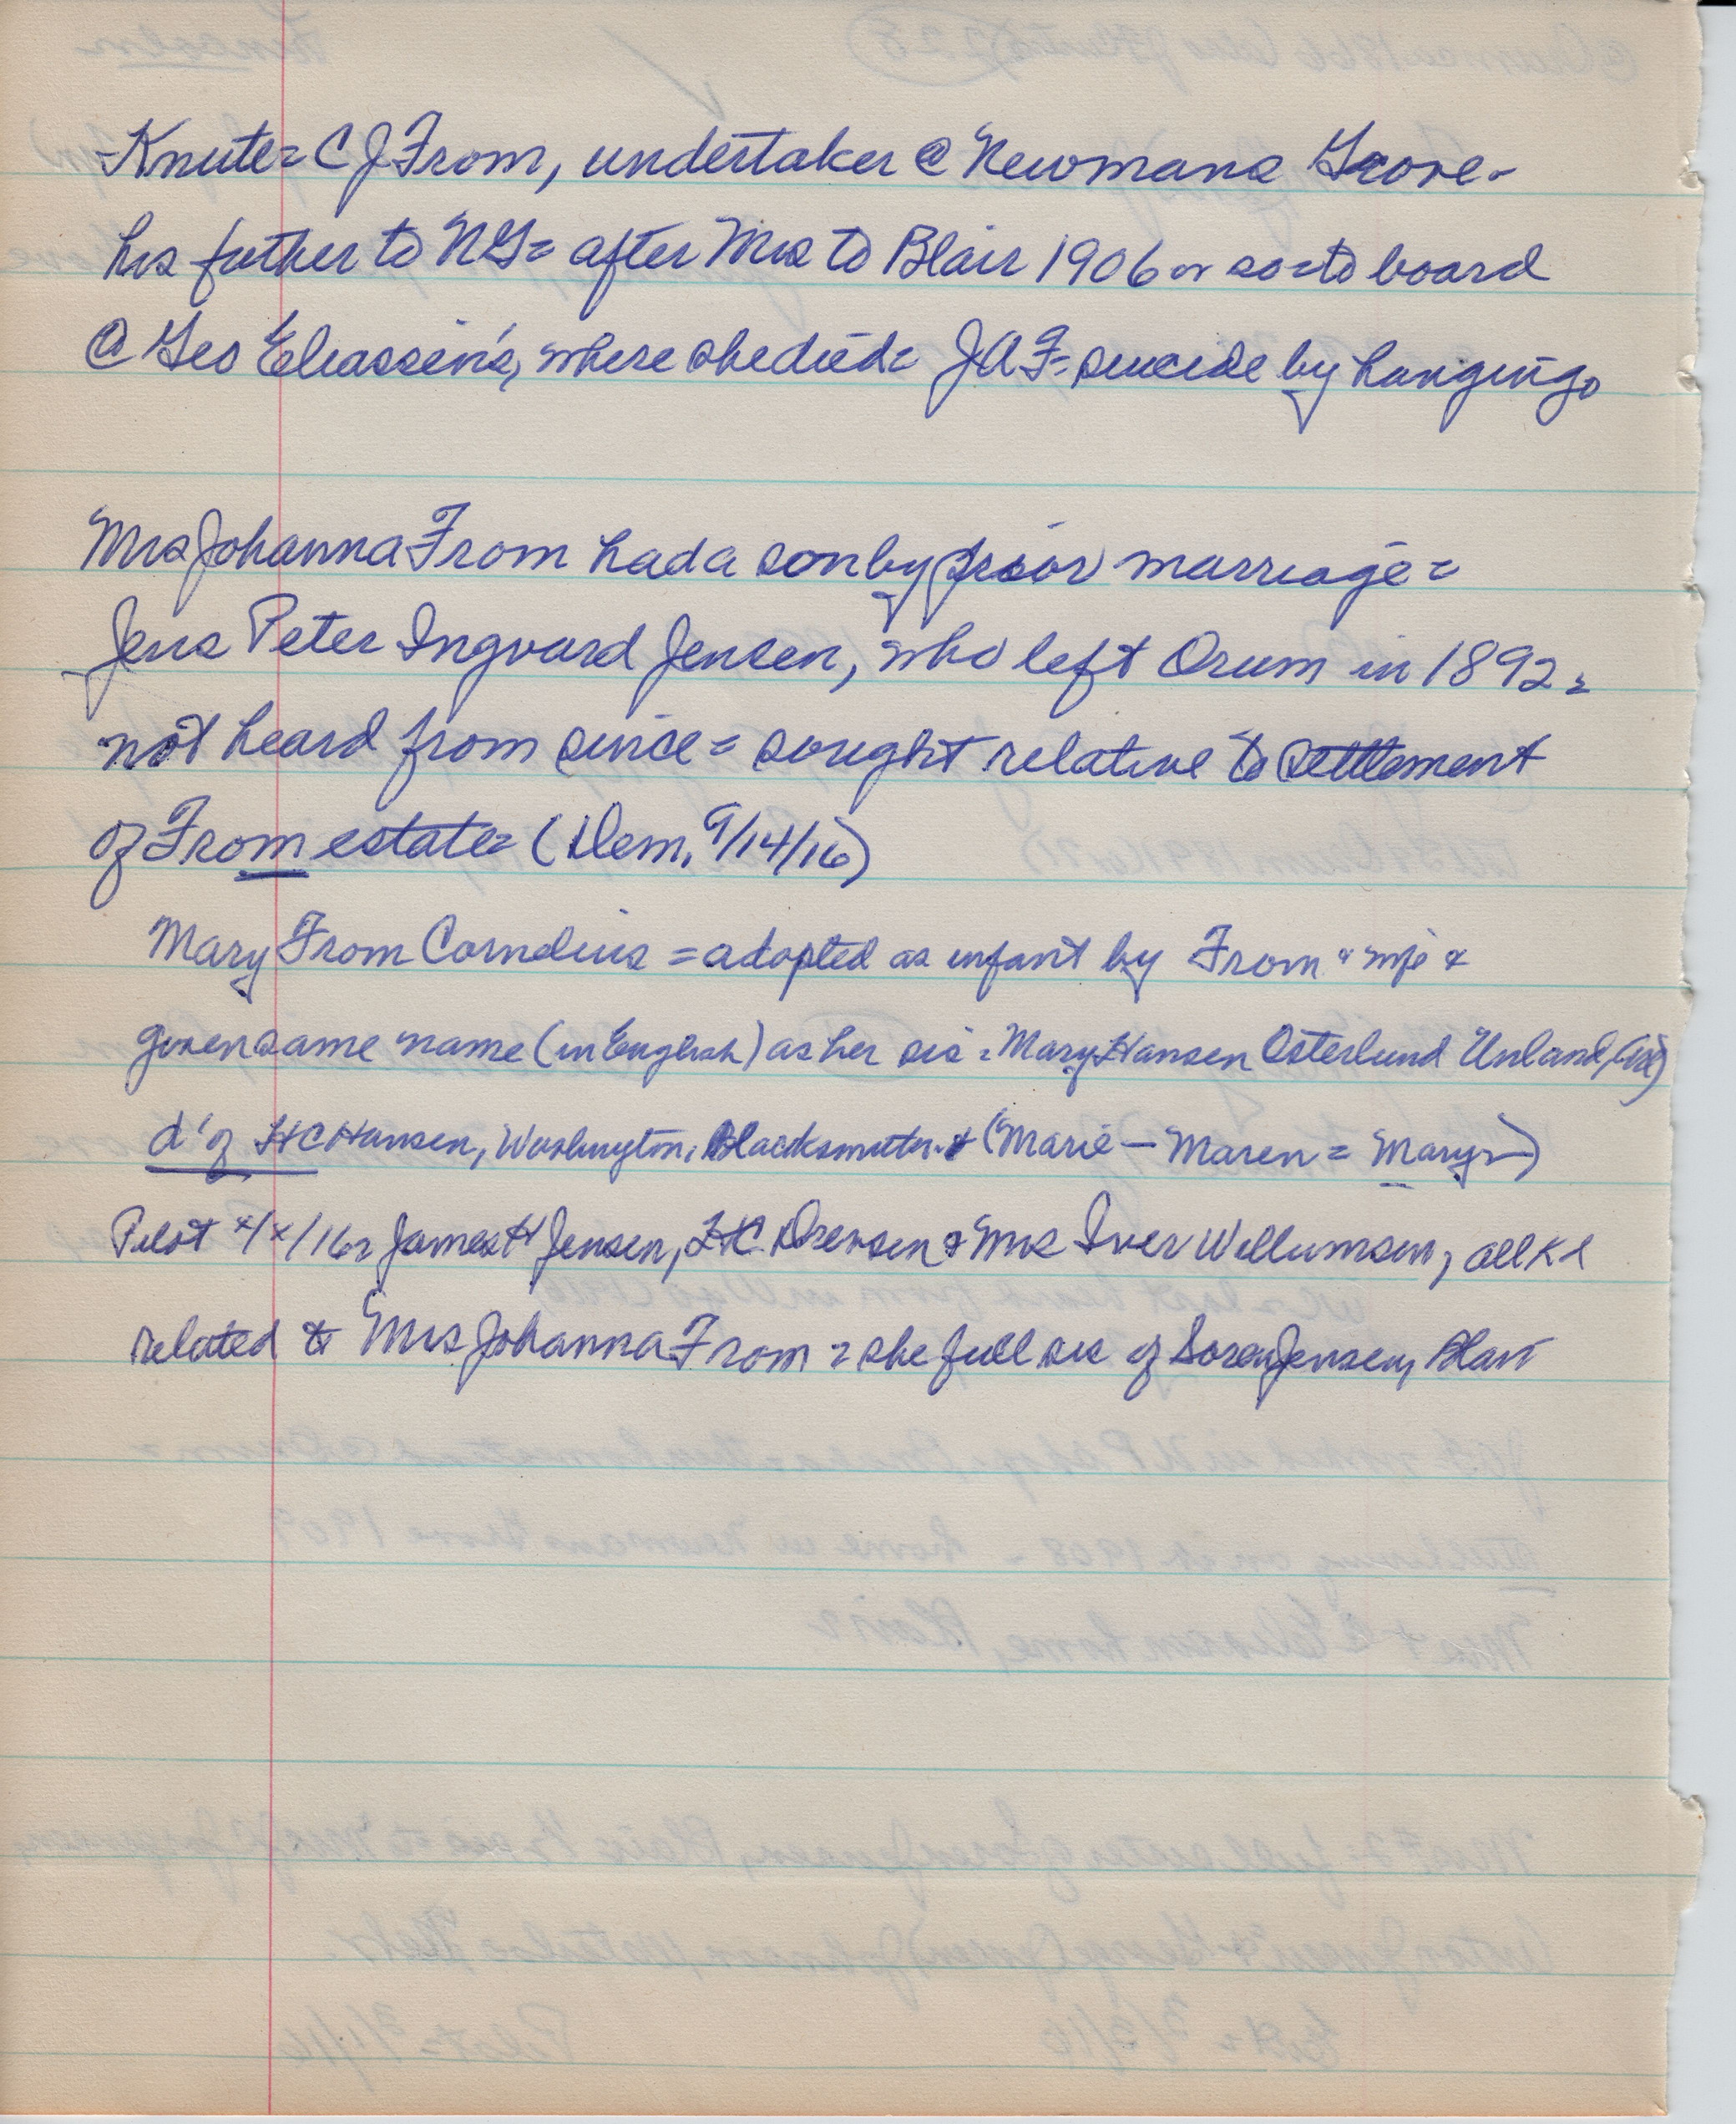 Knute = C J From, undertaker @ Newmans Grove -
his father to NG = after Mrs to Blair 1906 or so = to board
@ Geo Eliassen's, where she died = J A F = suicide by hanging.
Mrs Johanna From had a son by prior marriage =
Jens Peter Ingvard Jensen, who left Orum in 1892 =
not heard from since = sought relative to settlement
of From estate = (Dem, 9/14/16)
Mary From Cornelius = adopted as infant by From & wife &
given same name (in English) as her sis = Mary Hansen Osterlund Unland,
d' of HC Hansen, Washington, Blacksmith & (Marie — Maren = Mary)
Pilot x/x/16 = James H Jensen, Drewsen & Mrs Iver Willumsen, all
related to Mrs Johanna From = she full sis of Soren Jensen, Blair